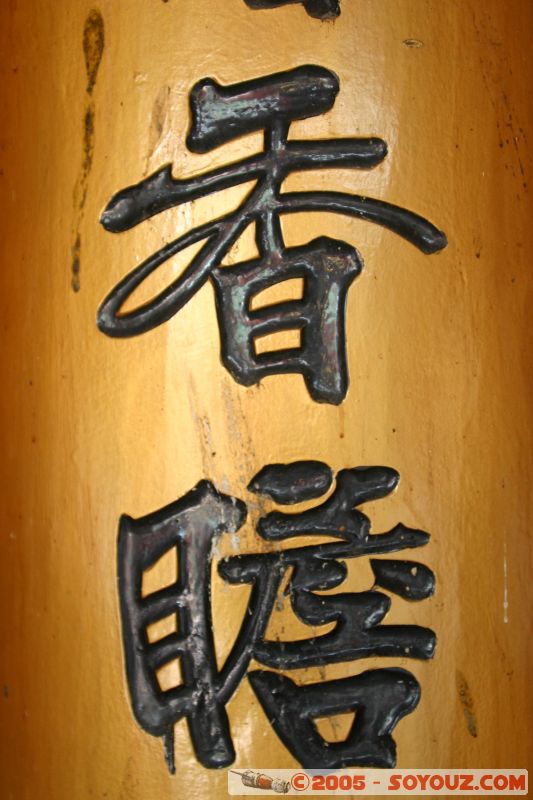 香
瞻
© 2005 - SOYOUZ.COM